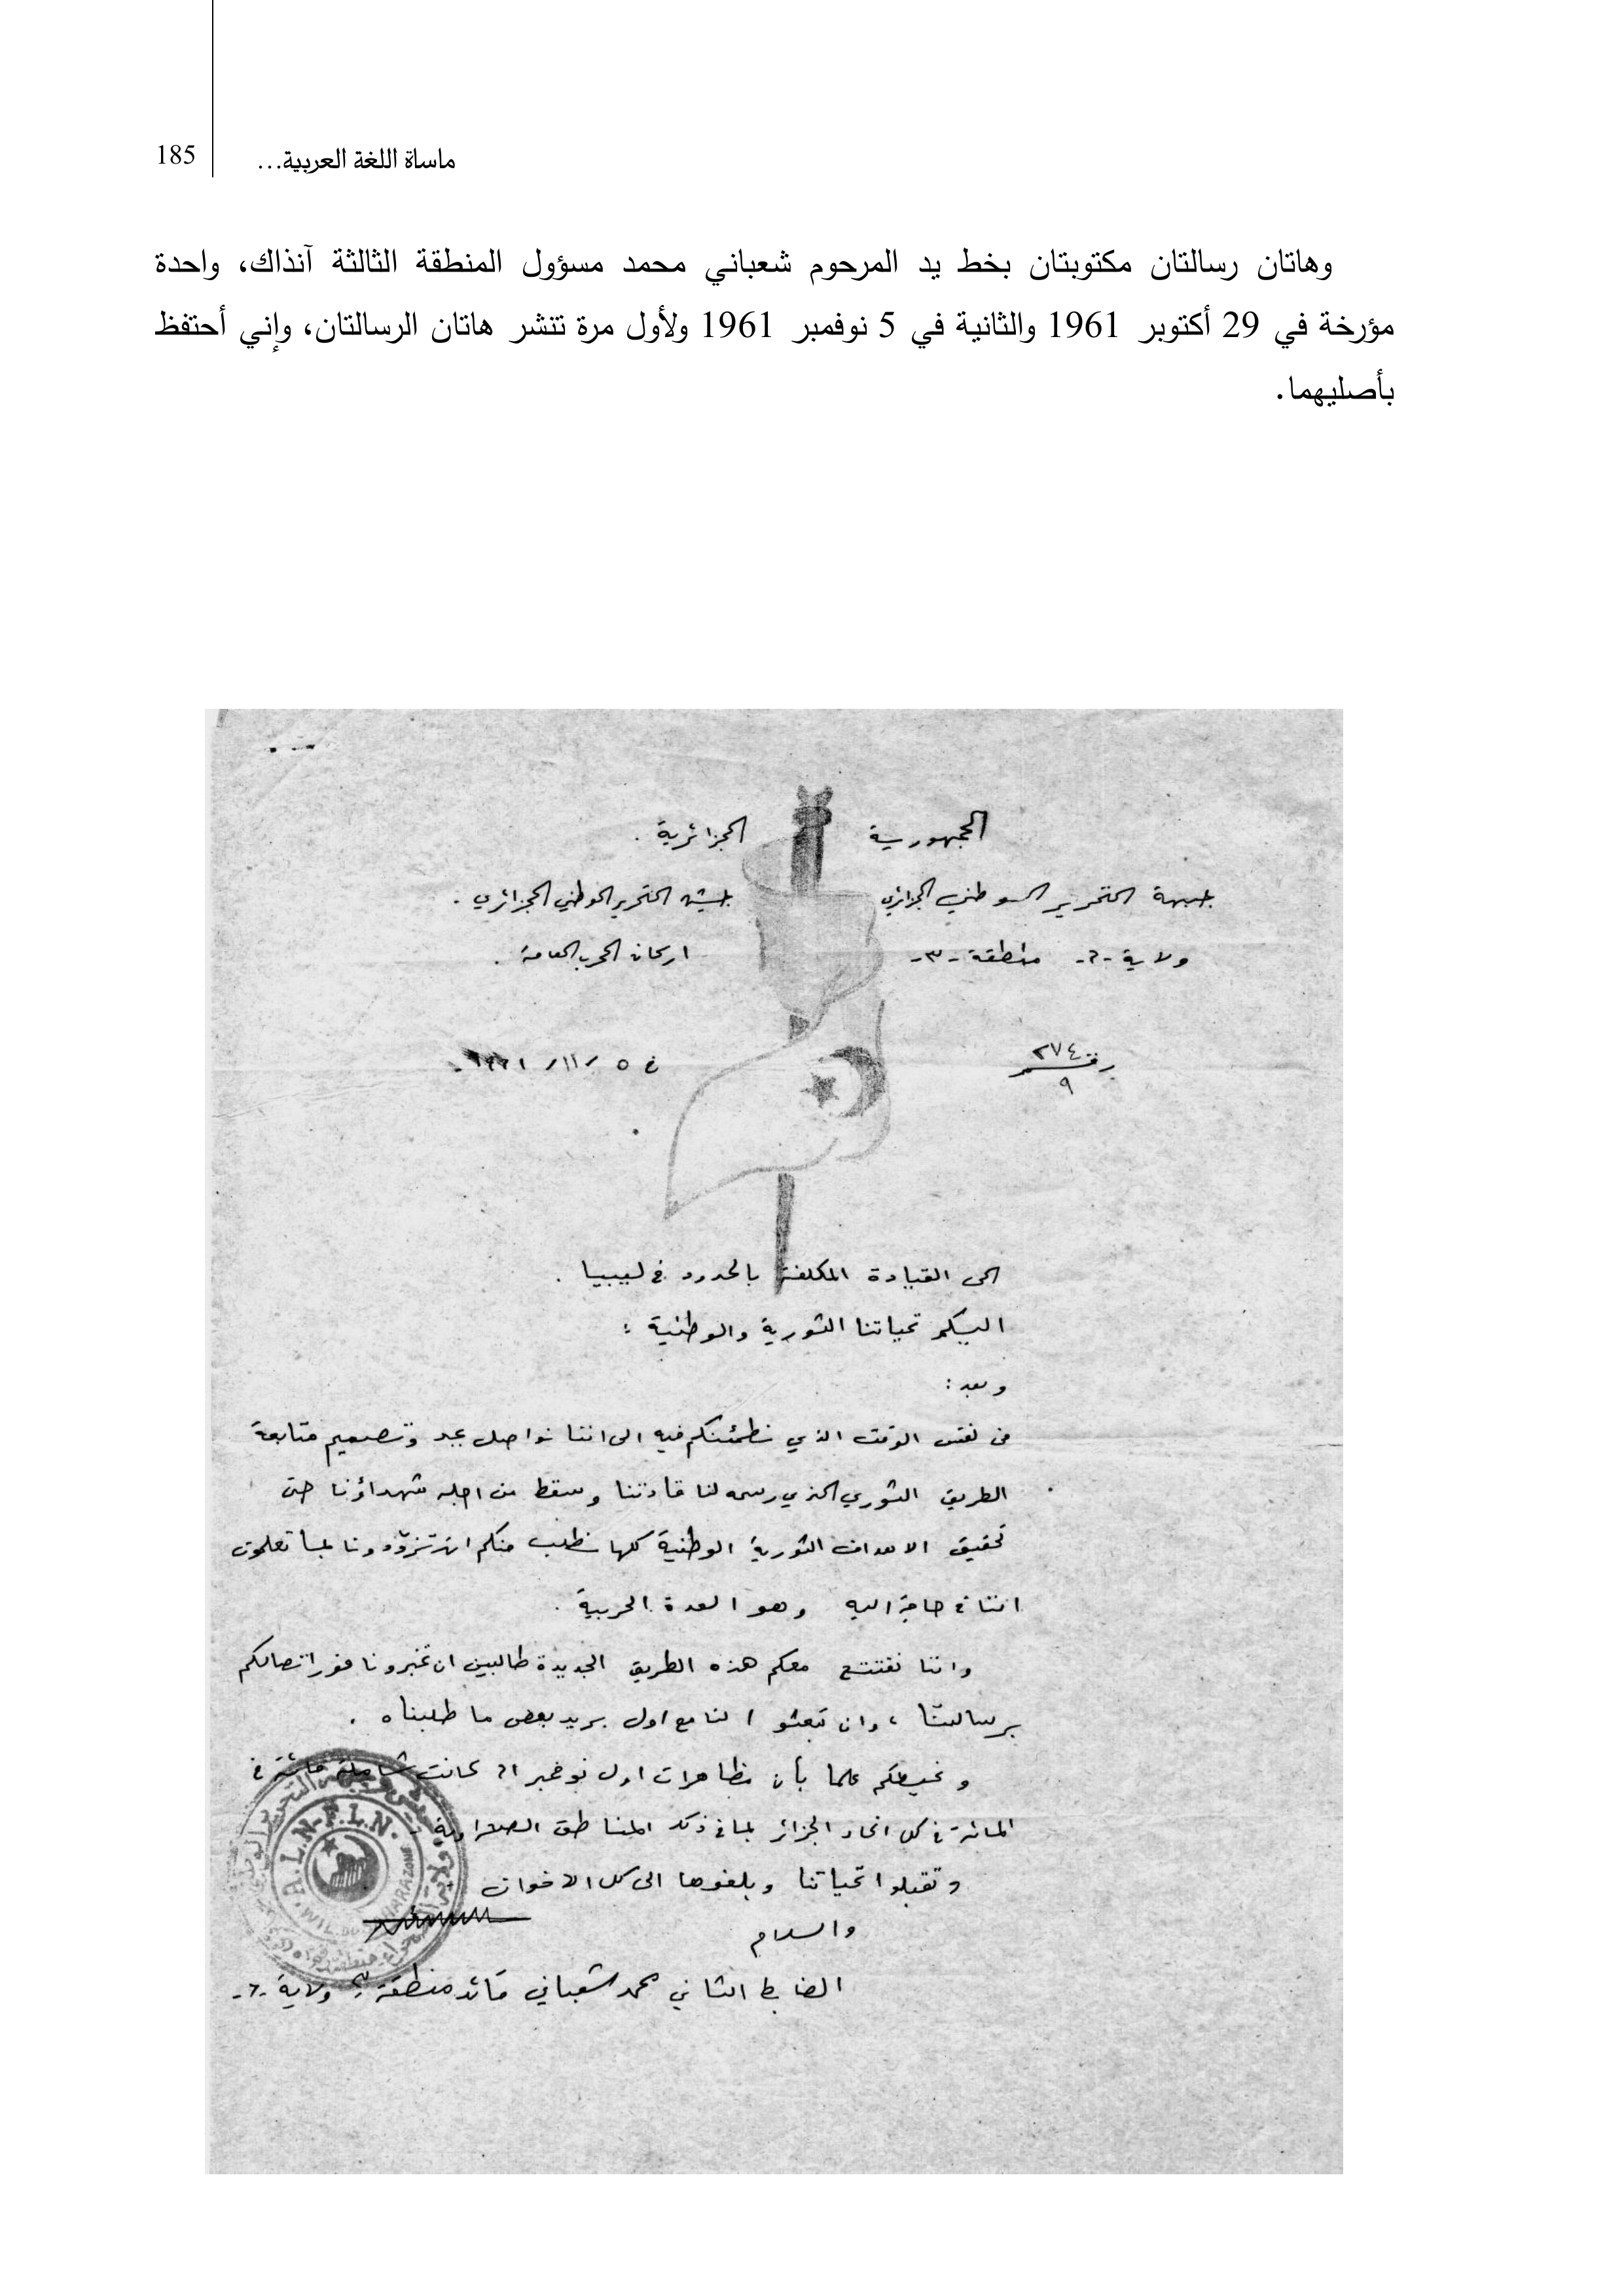 185
ماساة اللغة العربية...
وهاتان رسالتان مكتوبتان بخط يد المرحوم شعباني محمد مسؤول المنطقة الثالثة آنذاك، واحدة
مؤرخة في 29 أكتوبر 1961 والثانية في 5 نوفمبر 1961 ولأول مرة تنشر هاتان الرسالتان، وإني أحتفظ
بأصليهما.
الجمهورية الجزائرية .
جبهة التحرير الوطني الجزائري جيش التحرير الوطني الجزائري .
ولاية -٦- منطقة -٣- اركان الحرب العامة .
رقم ٢٧٤/٩ في ٥ /١١/ ١٩٦١-
الى القيادة المكلفة بالحدود في ليبيا .
اليكم تحياتنا الثورية والوطنية :
وبعد :
في نفس الوقت الذي نطمئنكم فيه الى اننا نواصل بجد وتصميم متابعة
الطريق الثوري الذي رسمه لنا قادتنا وسقط من اجله شهداؤنا حتى
تحقيق الاهداف الثورية الوطنية كلها نطلب منكم ان تزودونا بما تعلمون
اننا في حاجة اليه وهو العدة الحربية .
واننا نفتتح معكم هذه الطريق الجديدة طالبين ان تخبرونا فور اتصالكم
برسالتنا ، وان تبعثوا لنا مع اول بريد بعض ما طلبناه .
ونحيطكم علما بأن مظاهرات اول نوفمبر ٦١ كانت شاملة مائة في
المائة في كل انحاء الجزائر بما في ذلك المناطق الصحراوية
وتقبلوا تحياتنا وبلغوها الى كل الاخوان
A.L.N-F.L.N.
والسلام
الضابط الثاني محمد شعباني قائد منطقة ٣ ولاية -٦-